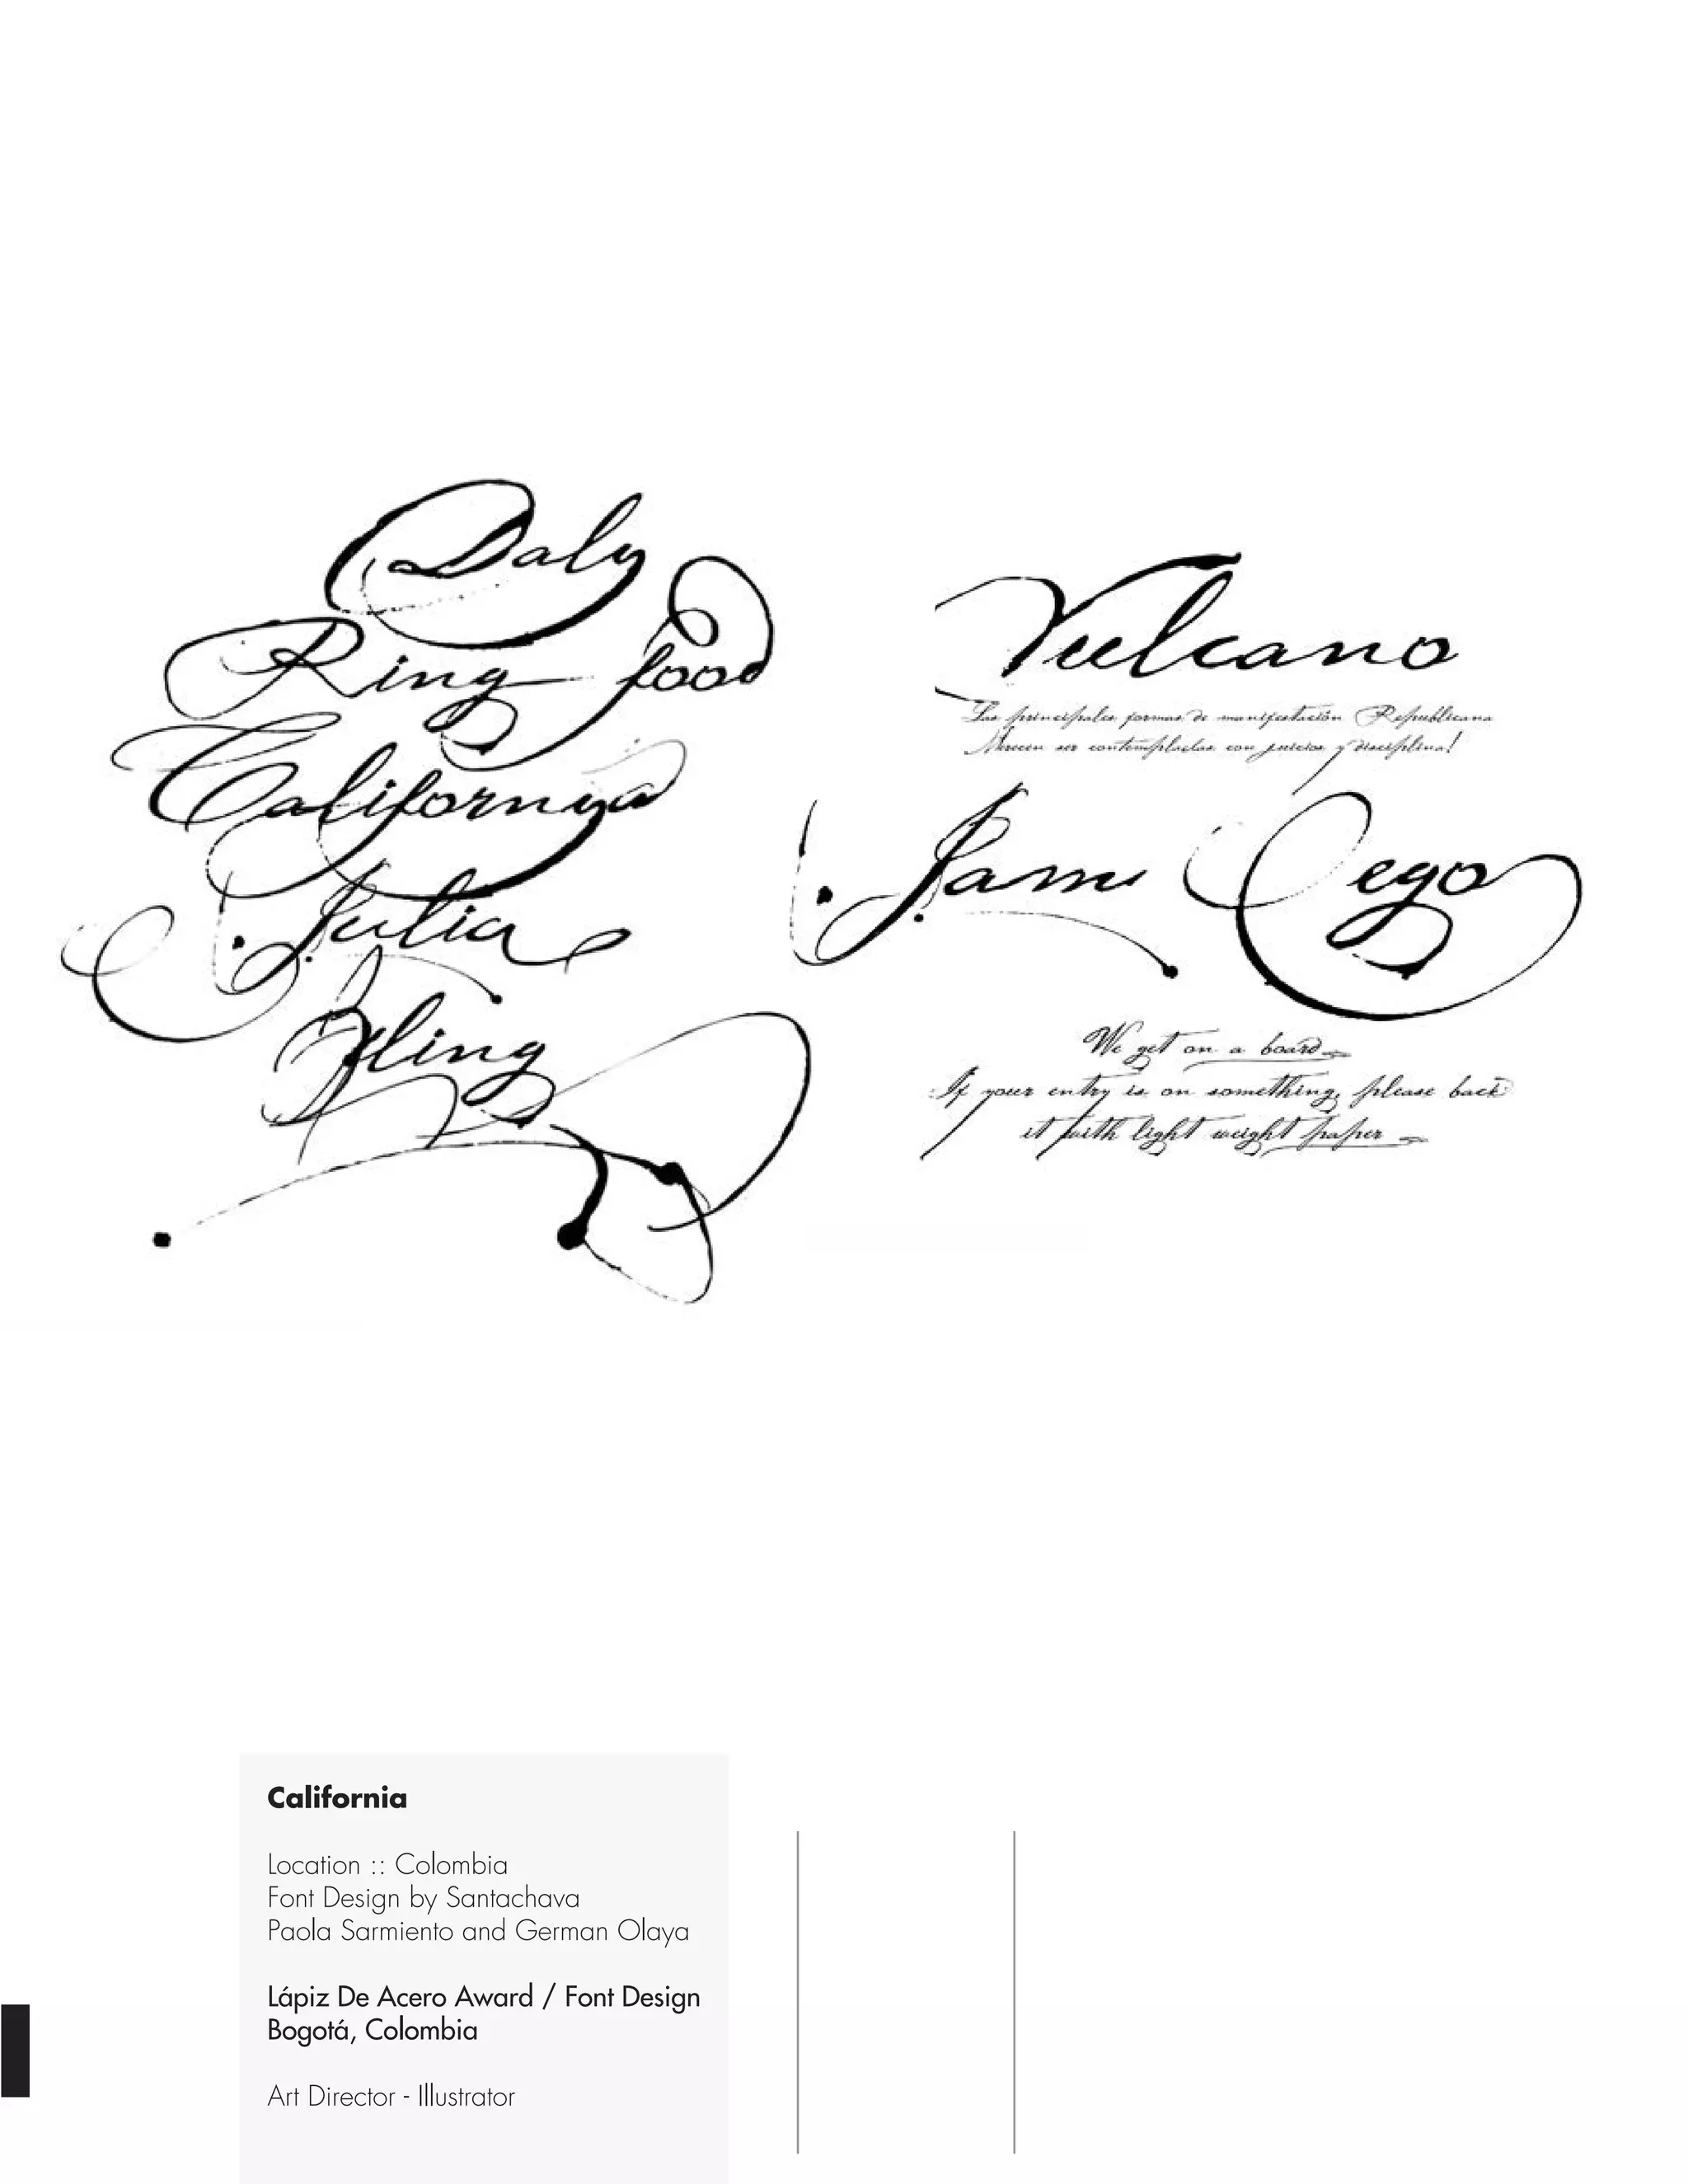 Daly
Ring food
Californya
Julia
Bling
Vulcano
Las principales formas de manifestación Republicana
Merecen ser contempladas con juicios y disciplina!
Jam Cego
We get on a board
If your entry is on something, please back
it with light weight paper
California
Location :: Colombia
Font Design by Santachava
Paola Sarmiento and German Olaya
Lápiz De Acero Award / Font Design
Bogotá, Colombia
Art Director - Illustrator